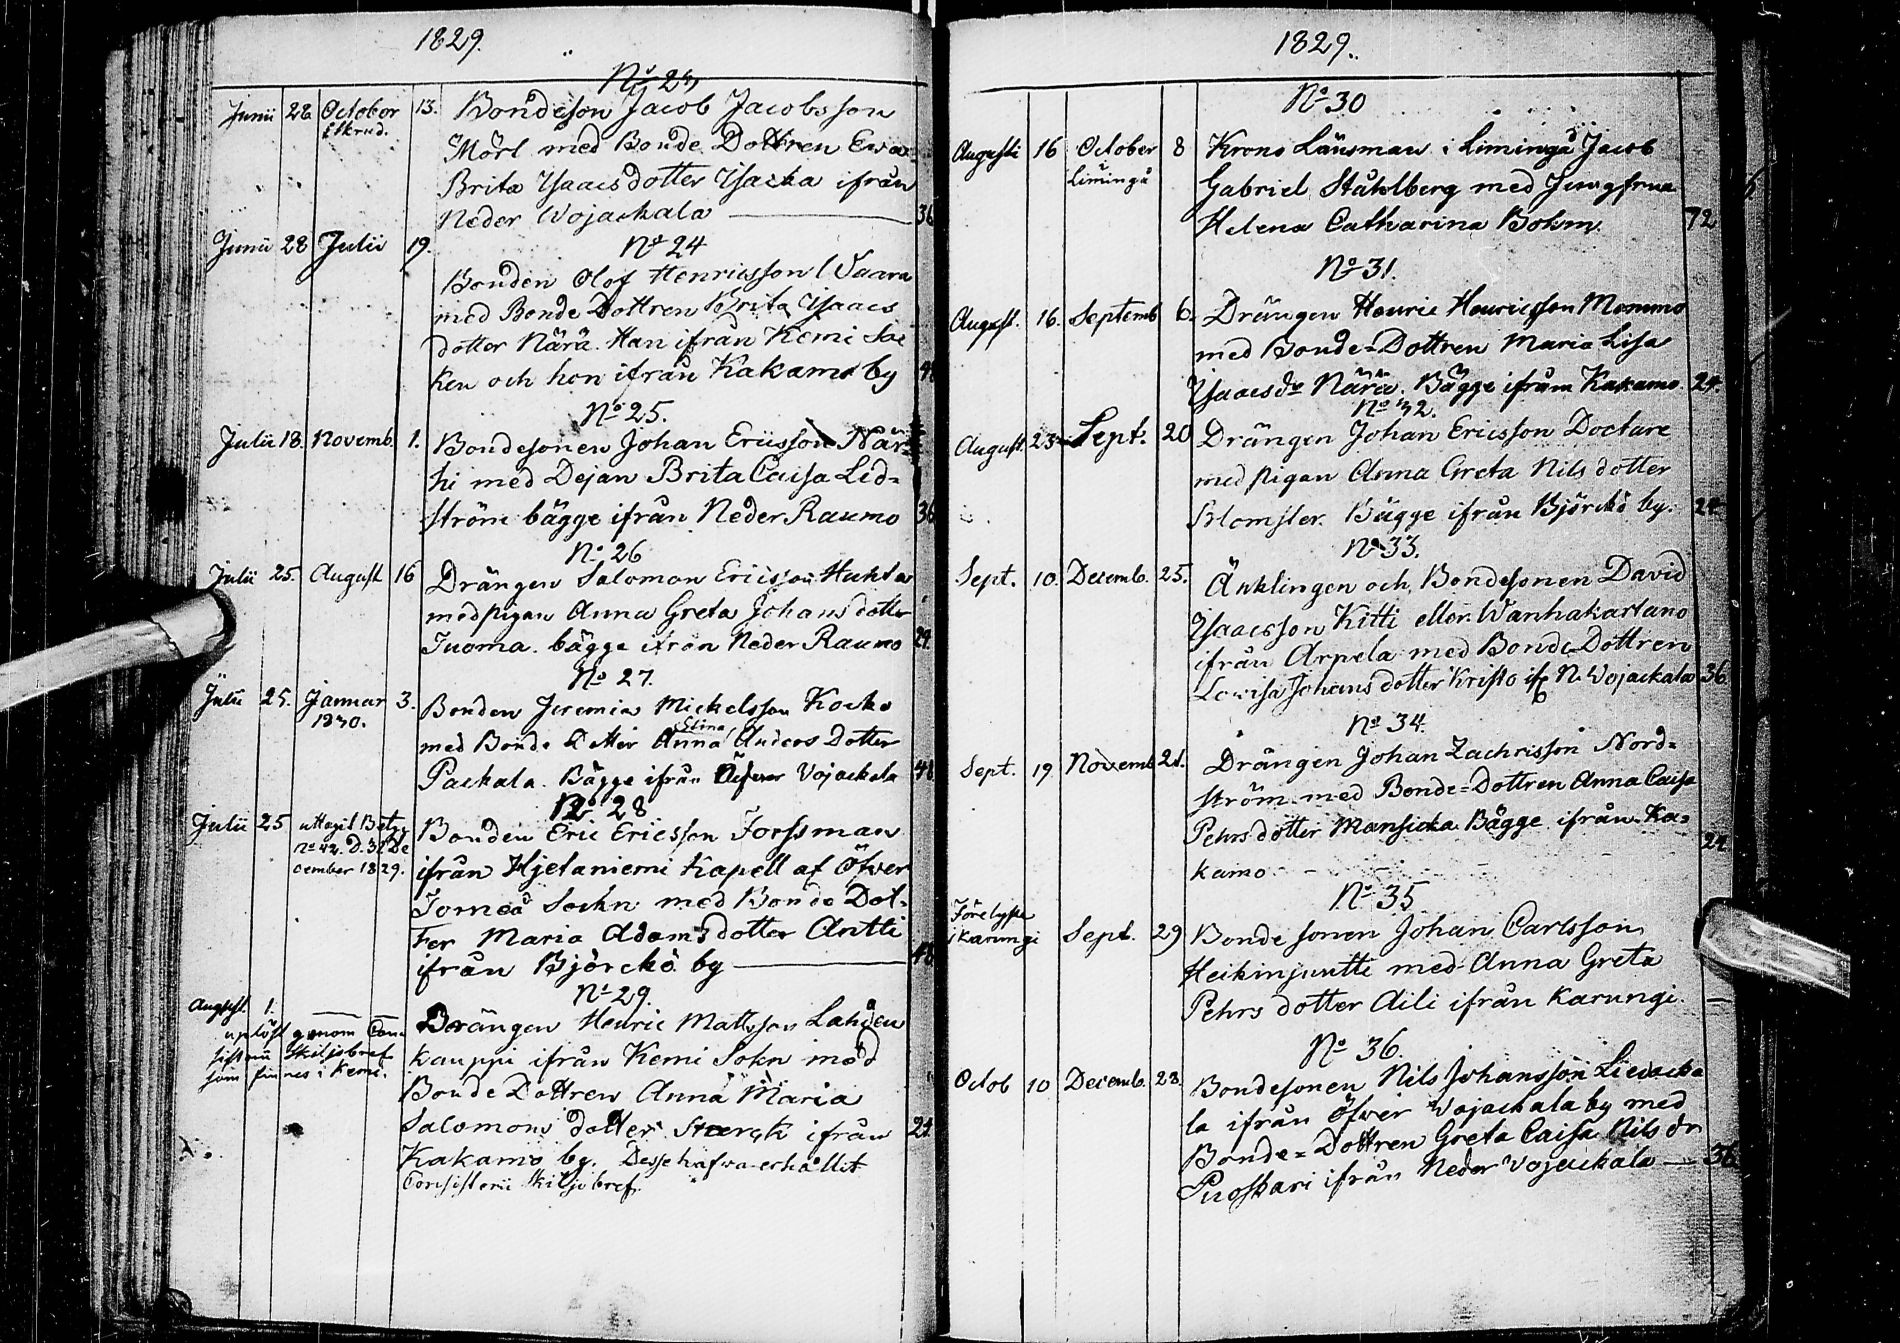 1829.
No 23
Junii 28. October 13. Bondeson Jacob Jacobsson
Mörl med Bonde Dottren Ewa
Brita Ysaacs dotter Ysacka ifrån
Neder Wojackala 36
No 24
Junii 28 Julii 19.
Bonden Olof Henricsson Waara
med Bonde Dottren Brita Ysaacs
dotter Närä. Han ifrån Kemi Soc
ken och hon ifrån Kakamo by 48
No 25.
Julii 18. Novemb. 1. Bondesonen Johan Ericsson När-
hi med Dejan Brita Caisa Lid-
ström bägge ifrån Neder Raumo 36
No 26
Julii 25. August 16 Drängen Salomon Ericsson Huhta
med pigan Anna Greta Johans dotter
Tuoma. bägge ifrån Neder Raumo 24.
No 27.
Julii 25. Januar 3. Bonden Jeremia Mickelsson Kocko
1830.
Stina
med Bonde Dotter Anna Anders Dotter
Packala. Bägge ifrån Öfwer Vojackala 48
No 28
Julii 25 uttagit Betyg Bonden Eric Ericsson Forssman
No 42. D. 31 De
cember 1829. ifrån Hjetaniemi Kapell af Öfwer
Torneå Sockn med Bonde Dot-
ter Maria Adams dotter Antti
ifrån Björckö by 48
No 29.
August. 1. Drängen Henric Mattsson Lahden
uplöst genom Con-
sistorii Skiljobref kauppi ifrån Kemi Sokn med
som finnes i Kemi.
Bonde Dottren Anna Maria
Salomons dotter ifrån 24
Kakamo by. Desse hafwa erhållit
Consistorii Skiljobref.
1829.
No 30
Augusti 16 October 8 Krono Länsman i Limingå Jacob
Limingå
Gabriel Ståhlberg med Jungfrun
Helena Catharina Bohm. 72
No 31.
August. 16. Septemb 6. Drängen Henric Henricsson Mommo
med Bonde=Dottren Maria Lisa
Ysaacs dr Närä. Bägge ifrån Kakamo. 24
No 32.
August. 23 Sept. 20 Drängen Johan Ericsson Doctare
med pigan Anna Greta Nils dotter
Blomster. Bägge ifrån Björckö by. 24
No 33.
Sept. 10. Decemb. 25. Änklingen och Bondesonen David
Ysaacsson Kitti eller Wanhakartano
ifrån Arpela med Bonde Dottren
Lowisa Johans dotter Kristo ifr N. Wojackala 36
No 34.
Sept. 19 Novemb 21. Drängen Johan Zachrisson Nord=
ström med Bonde=Dottren Anna Caisa
Pehrs dotter Mansicka Bägge ifrån Ka=
kamo 24
No 35
i Karungi Sept. 29 Bonde sonen Johan Carlsson
Heikinjuntti med Anna Greta
Pehrs dotter Aili ifrån Karungi.
No 36.
Octob 10 Decemb. 28. Bondesonen Nils Johansson Liedacka
la ifrån Öfwer Wojackala by med
Bonde=Dottren Greta Caisa Nils dr
Puoskari ifrån Neder Vojackala 36